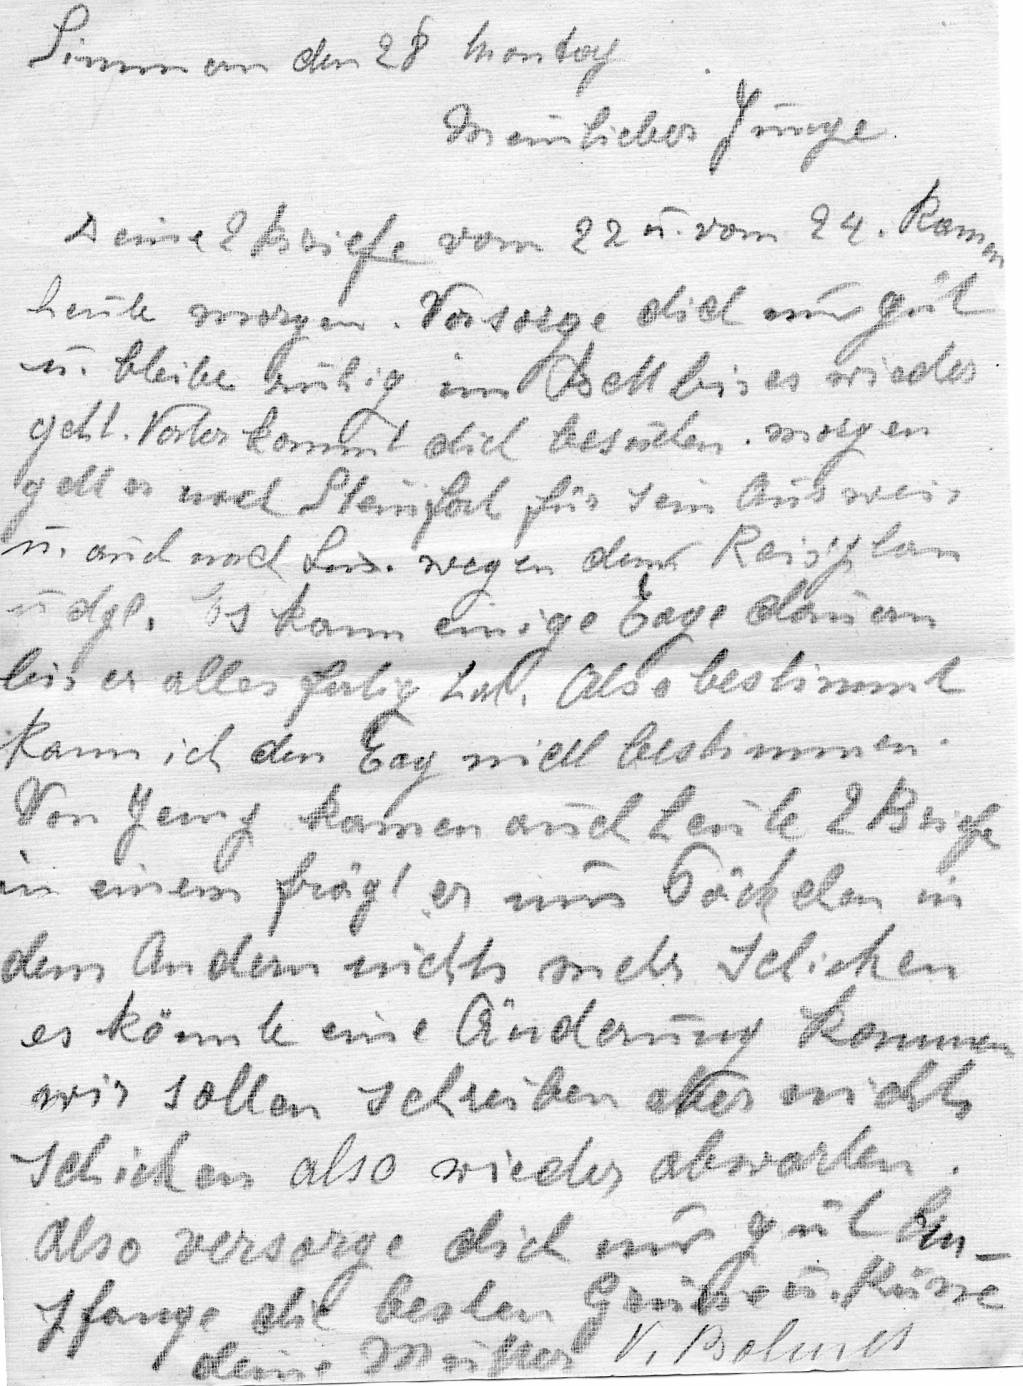 Simmern den 28 Montag
Mein lieber Junge.
Deine 2 Briefe vom 22 u. vom 24. Kamen
heute morgen. Versorge dich nur gut
u. bleibe ruhig im Bett bis es wieder
geht. Vater kommt dich besuchen. morgen
geht er nach Steinfort für sein Ausweis
u. auch nach Lux. wegen dem Reiseplan
u dgl. Es kann einige Tage dauern
bis er alles fertig hat. Also bestimmt
kann ich den Tag nicht bestimmen.
Von Jemp kamen auch heute 2 Briefe
in einem frägt er um Päckchen in
dem Andern nichts mehr schicken
es könnte eine Änderung kommen
wir sollen schreiben aber nichts
schicken also wieder abwarten.
Also versorge dich nur gut Em-
pfange die besten Grüsse u. Küsse
deine Mutter V.